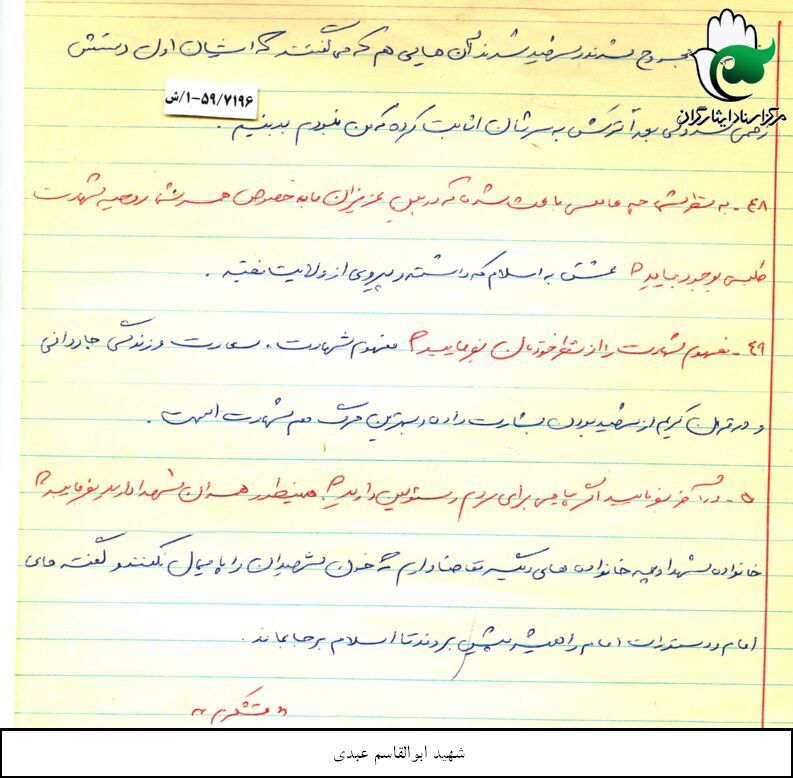 مجروح شدند و شهید شدند آن هایی هم که می گفتند که ایشان اول دستش
مرکز اسناد ایثارگران
۱-۵۹/۷۱۹۶/ش
زخمی شد ولی بعداً ترکش به سرشان اثابت کرده که من نبودم ببینیم .
۴۸ - به نظر شما چه عاملی باعث شد تا که در بین عزیزان ما به خصوص همسر شما روحیه شهادت
طلبی بوجود بیاید؟ عشق به اسلام که داشتند و پیروی از ولایت فقیه .
۴۹ - مفهوم شهادت را از نظر خودتان بفرمایید؟ مفهوم شهادت . سعادت و زندگی جاودانی
و در قرآن کریم از شهید بودن بشارت داده و بهترین مرگ هم شهادت است .
۵۰ - در آخر بفرمایید اگر پیامی برای مردم و مسئولین دارید؟ همینطور همسران شهدا دارید بفرمایید؟
خانواده شهدا و همه خانواده های دیگر تقاضا دارم که خون شهیدان را پایمال نکنند و گفته های
امام و دستورات امام را همیشه پیش ببروند تا اسلام برجا بماند .
" متشکرم "
شهید ابوالقاسم عبدی